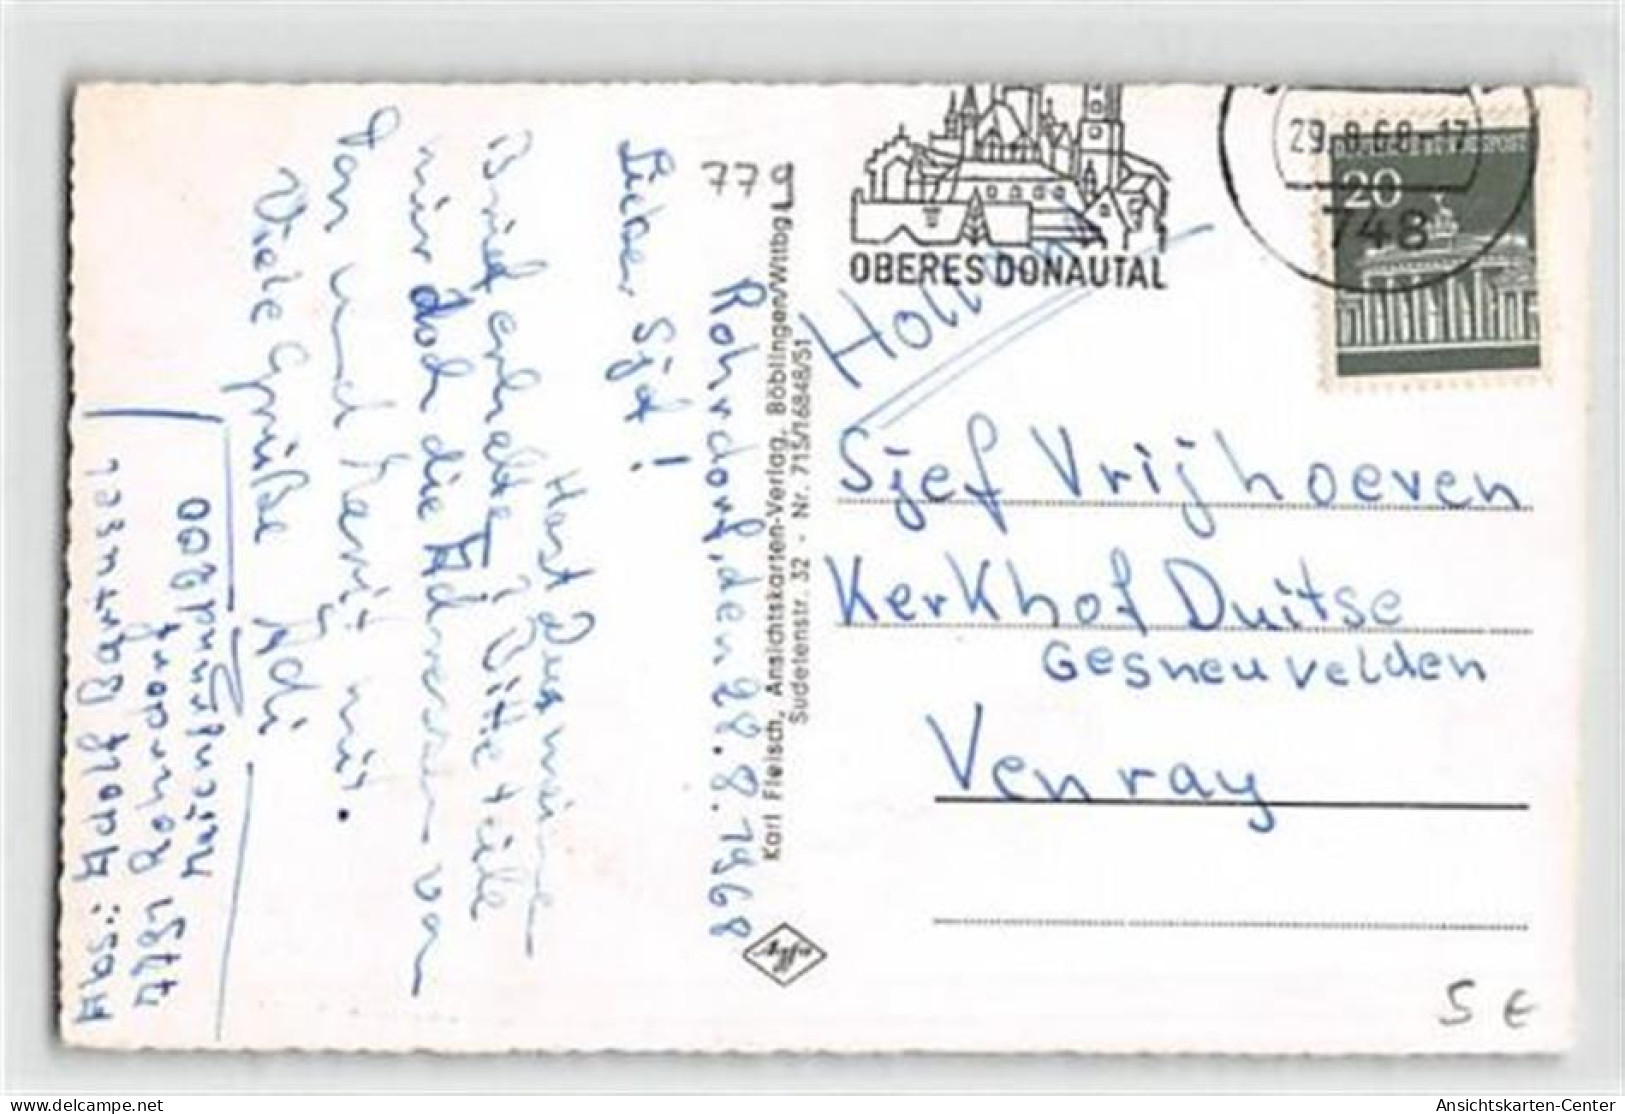 779
Rohrdorf, den 28.8.1968
Lieber Sjef!
Hast Du meine
Brief erhalten? Bitte teile
mir doch die Adressen von
Dor und Gerrit mit.
Viele Grüße Adi
Abs.: Adolf Bantsel
7791 Rohrdorf
Karl Fleisch, Ansichtskarten-Verlag, Böblingen/Wttbg.
Sudetenstr. 32 - Nr. 715/16848/51
Agfa
OBERES DONAUTAL
29.8.68-17
748
20
Holland
Sjef Vrijhoeven
Kerkhof Duitse
Gesneuvelden
Venray
5 €
delcampe.net
Ansichtskarten-Center